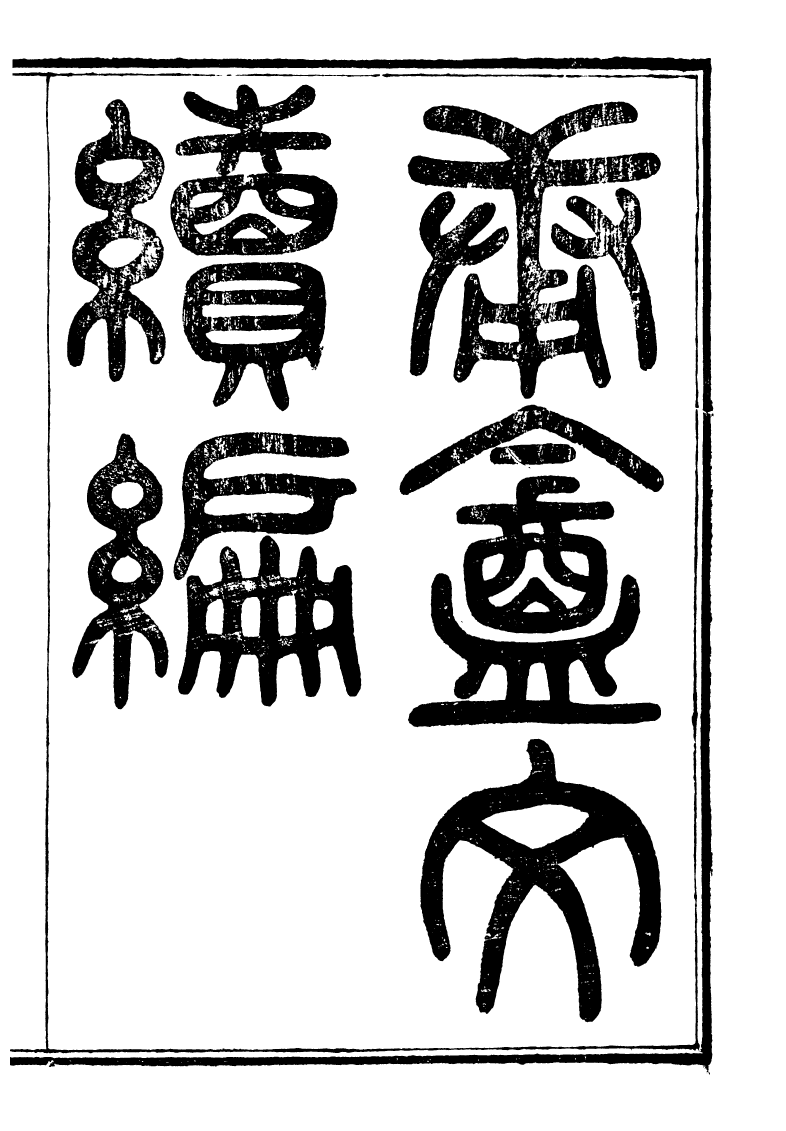 庸盦文
續編